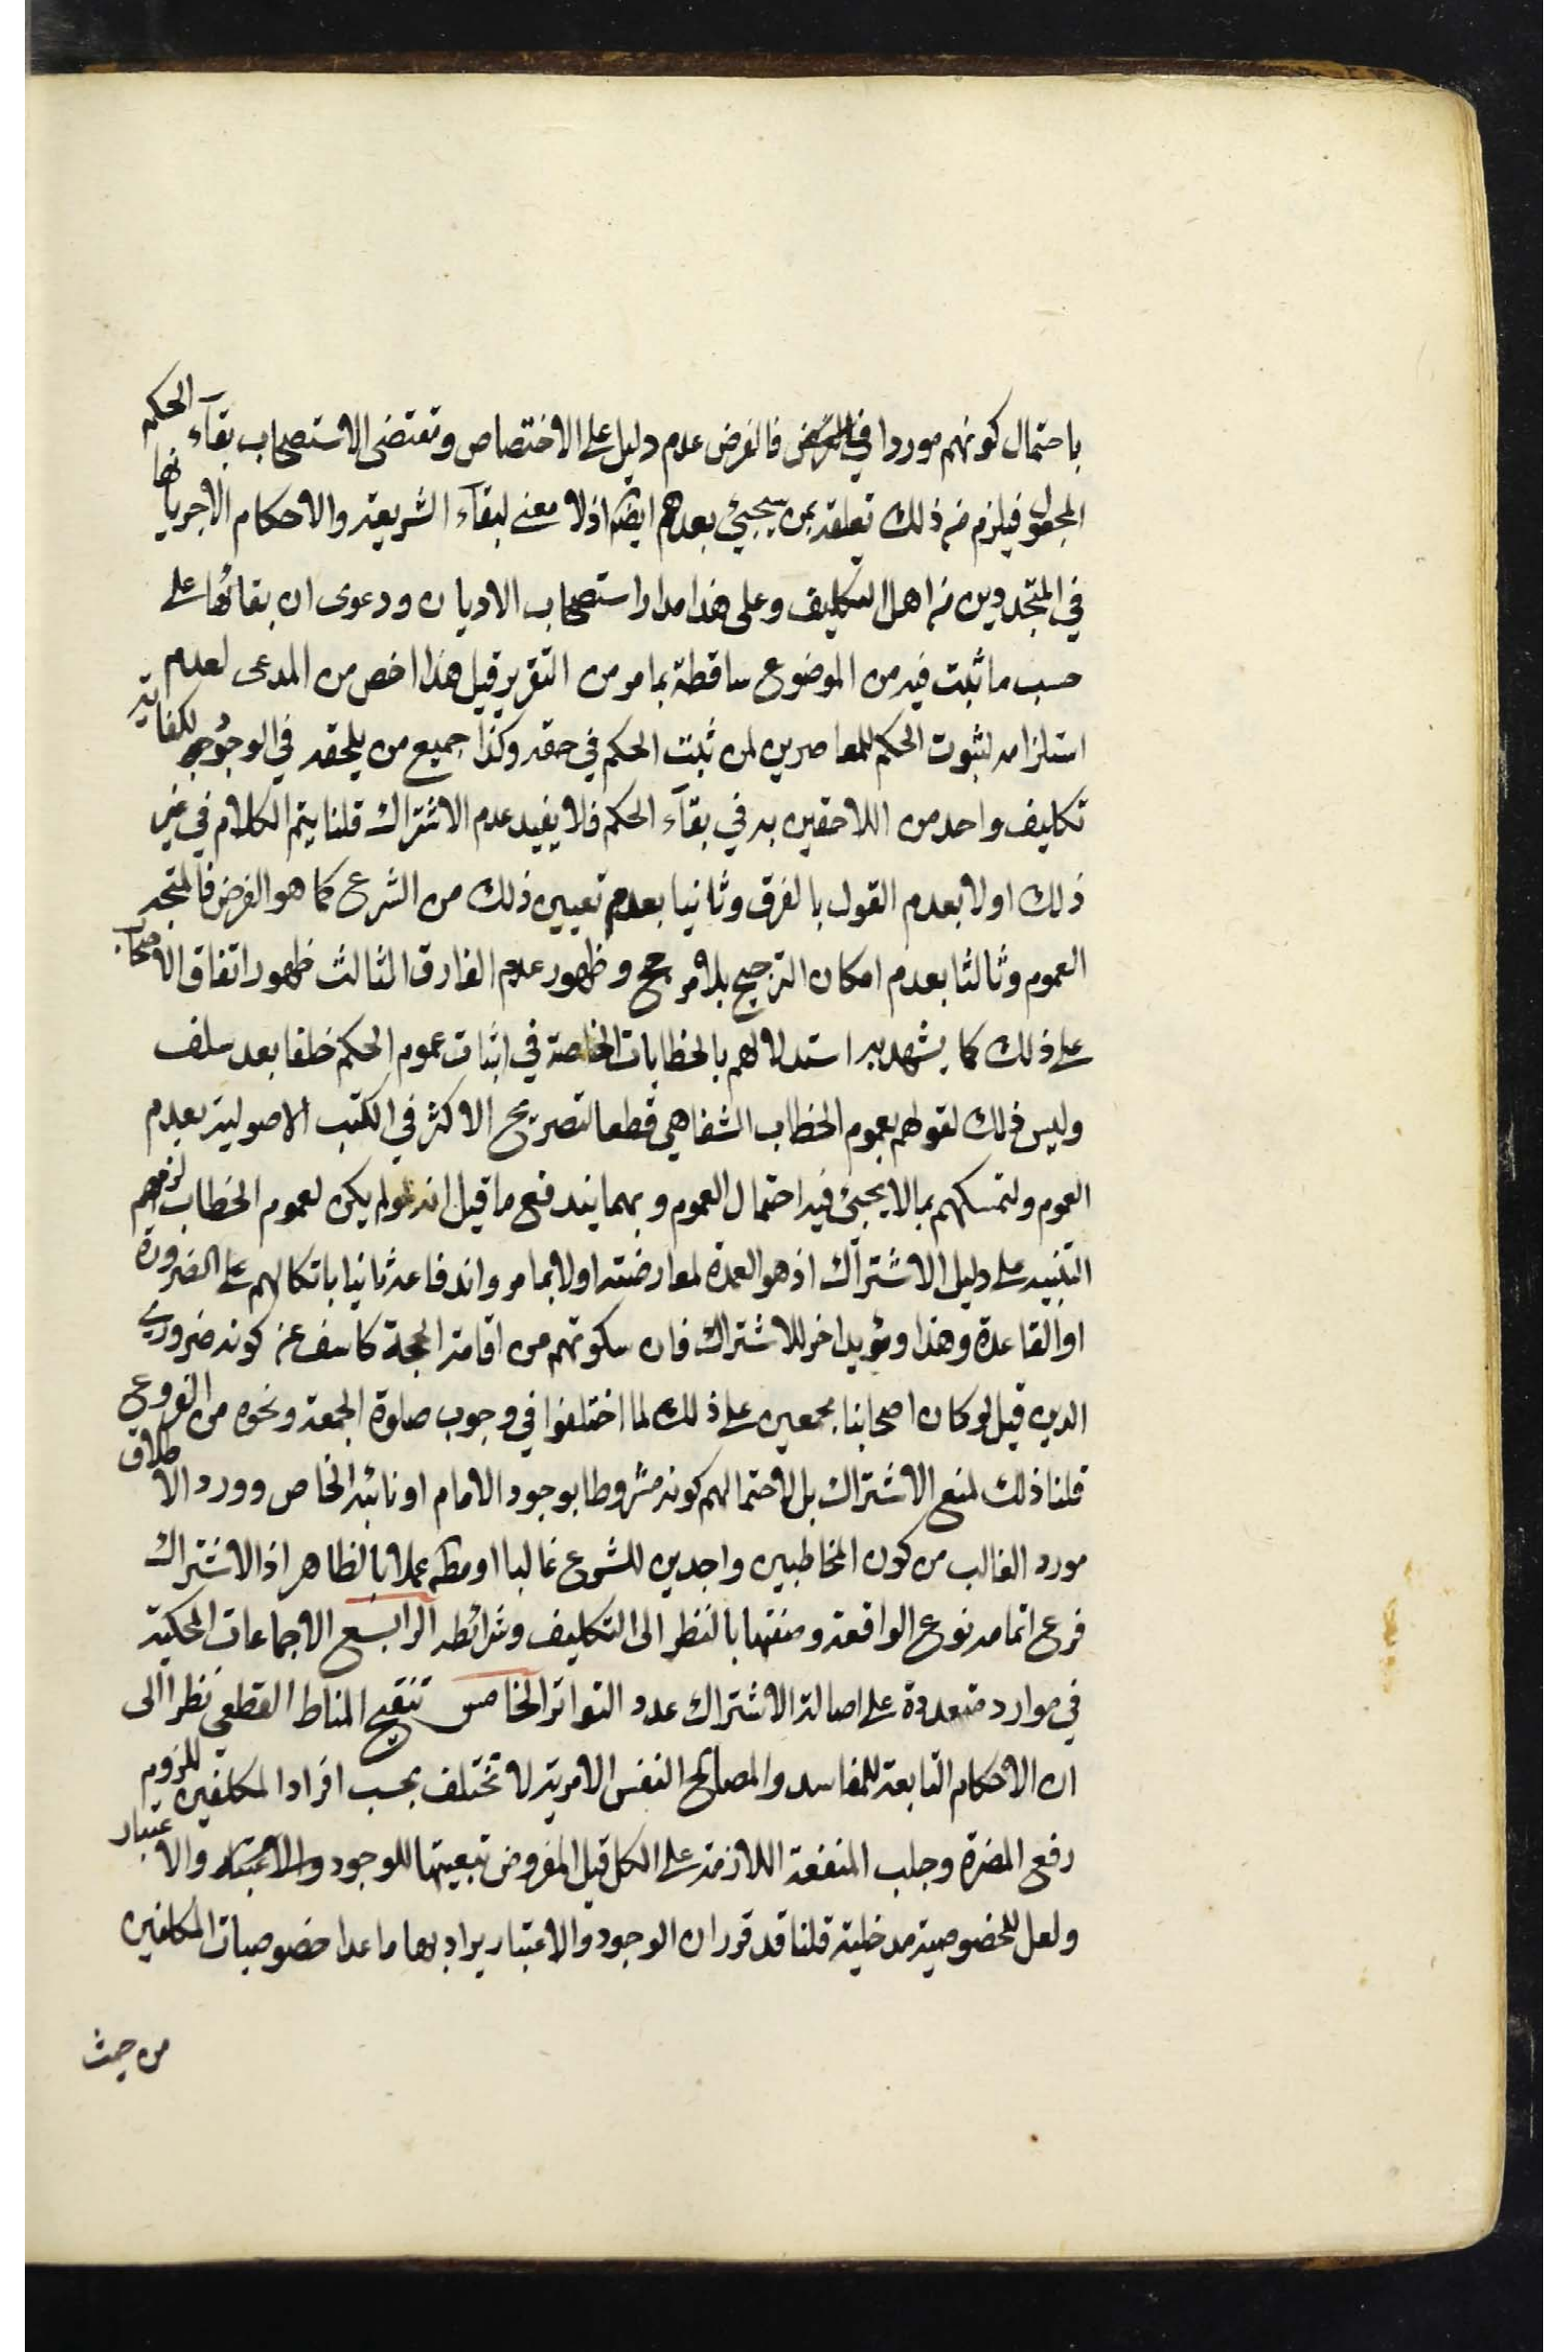 باحتمال كونهم موردا في فالفرض عدم دليل على الاختصاص وتقتضى الاستصحاب بقآء الحكم
المجعول فيلزم منه ذلك تعلقه بمن سيجيئ بعدهم ايضا اذ لا معنى لبقآء الشريعة والاحكام الا جريانها
في المتجددين من اهل التكليف وعلى هذا مدار استصحاب الاديان ودعوى ان بقائها على
حسب ما ثبت فيه من الموضوع ساقطة بما مر من التقرير قيل هذا اخص من المدعى لعدم
استلزامه لثبوت الحكم للمعاصرين لمن ثبت الحكم في حقه وكذا جميع من يلحقه في الوجود لكفاية
تكليف واحد من اللاحقين به في بقآء الحكم فلا يفيد عدم الاشتراك قلنا يتم الكلام في غير
ذلك اولا بعدم القول بالفرق وثانيا بعدم تعيين ذلك من الشرع كما هو الفرض فالمتجه
العموم وثالثا بعدم امكان الترجيح بلا مرجح وظهور عدم الفارق الثالث ظهور اتفاق الاصحاب
على ذلك كما يشهد به استدلالهم بالخطابات الخاصة في اثبات عموم الحكم خلفا بعد سلف
وليس ذلك لقولهم بعموم الخطاب الشفاهي قطعا لتصريح الاكثر في الكتب الاصولية بعدم
العموم ولتمسكهم بما لا يجيئ فيه احتمال العموم وبهما يندفع ما قيل انه لو لم يكن لعموم الخطاب لزمهم
التنبيه على دليل الاشتراك اذ هو العمدة لمعارضته اولا بما مر واندفاعه ثانيا باتكالهم على الضرورة
او القاعدة وهذا ومؤيد اخر للاشتراك فان سكوتهم من اقامة الحجة كاشف عن كونه ضروري
الدين قيل لو كان اصحابنا مجمعين على ذلك لما اختلفوا في وجوب صلوة الجمعة ونحوه من الفروع
قلنا ذلك لمنع الاشتراك بل لاحتمالهم كونه مشروطا بوجود الامام او نائبه الخاص وورد الاطلاق
مورد الغالب من كون المخاطبين واجدين للشروع غالبا او مط عملا بالظاهر اذ الاشتراك
فرع اتمامه نوع الواقعة وصنفها بالنظر الى التكليف وشرائطه الرابع الاجماعات المحكية
في موارد متعددة على اصالة الاشتراك عدد التواتر الخامس تنقيح المناط القطعي نظرا الى
ان الاحكام التابعة للمفاسد والمصالح النفس الامرية لا تختلف بحسب افراد المكلفين للزوم
رفع المضرة وجلب المنفعة اللازمة على الكل قيل المفروض تبعيتها للوجود والاعتبار والاعتبار
ولعل للخصوصية مدخلية قلنا قد قرر ان الوجود والاعتبار يراد بها ما عدا خصوصيات المكلفين
من حيث